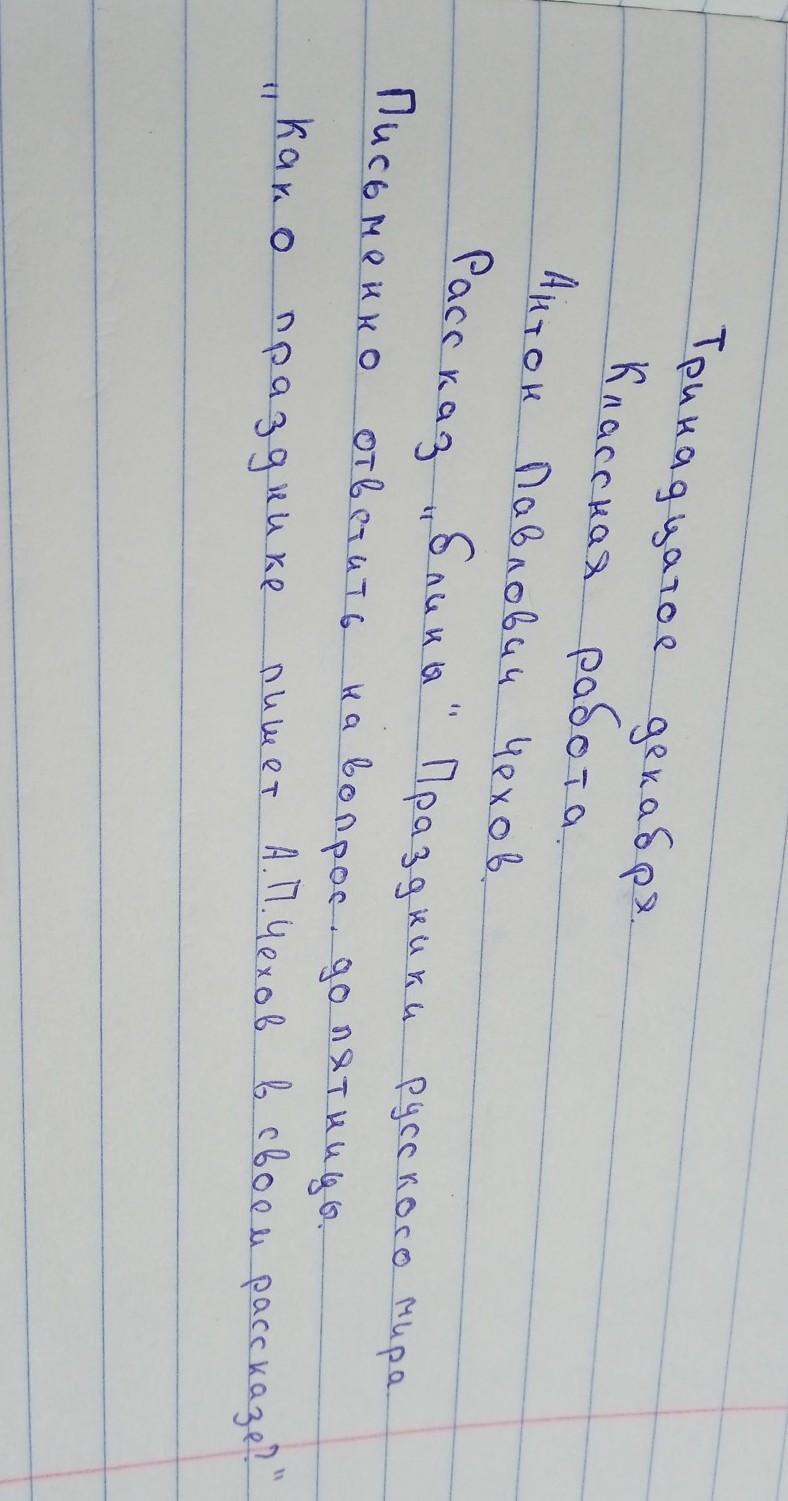 Тринадцатое декабря.
Классная работа.
Антон Павлович Чехов.
Рассказ „блины" Праздники русского мира
Письменно ответить на вопрос. до пятницы.
„Како празднике пишет А.П.Чехов в своем рассказе?"